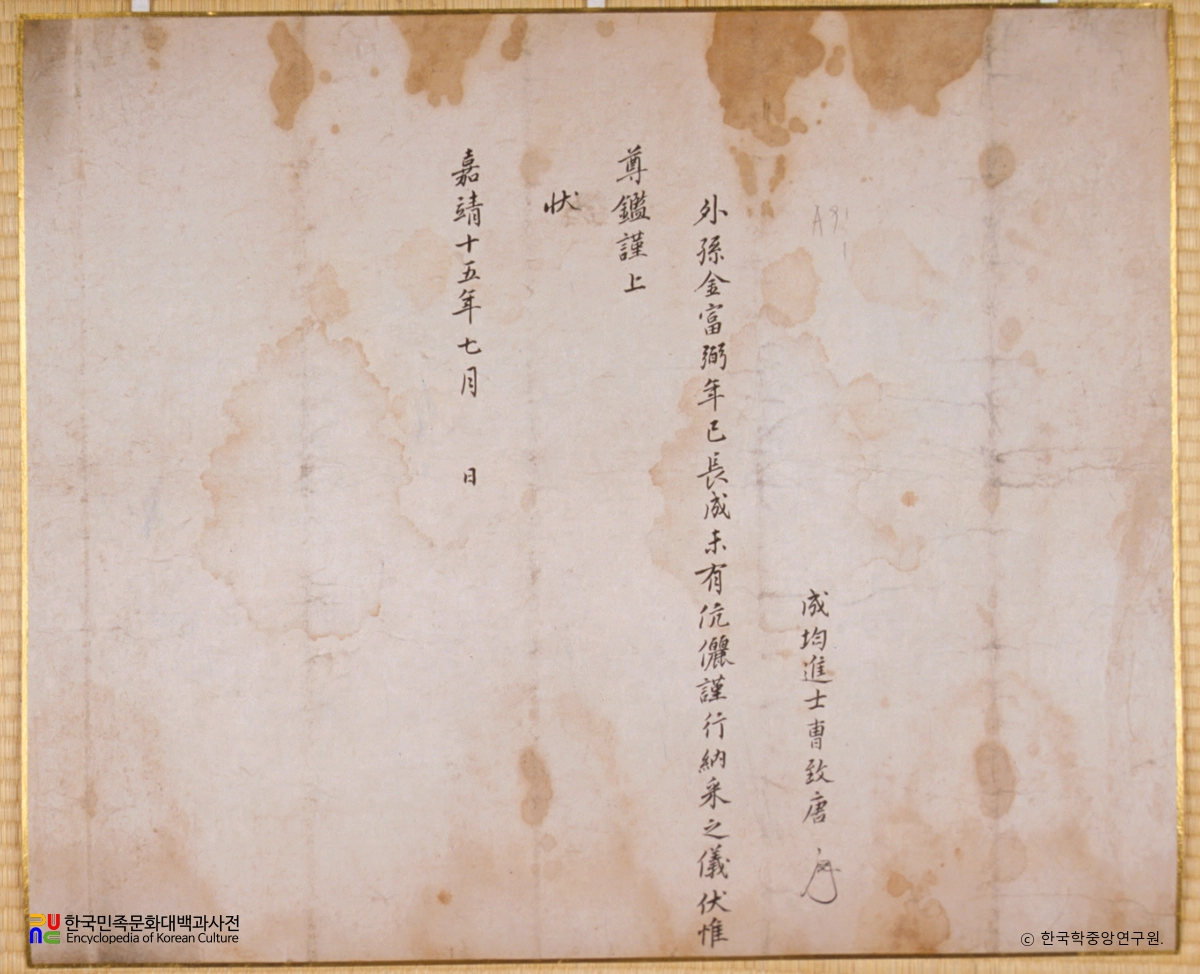 成均進士曺致唐
外孫金富弼年已長成未有伉儷謹行納采之儀伏惟
尊鑑謹上
狀
嘉靖十五年七月 日
한국민족문화대백과사전
Encyclopedia of Korean Culture
© 한국학중앙연구원.